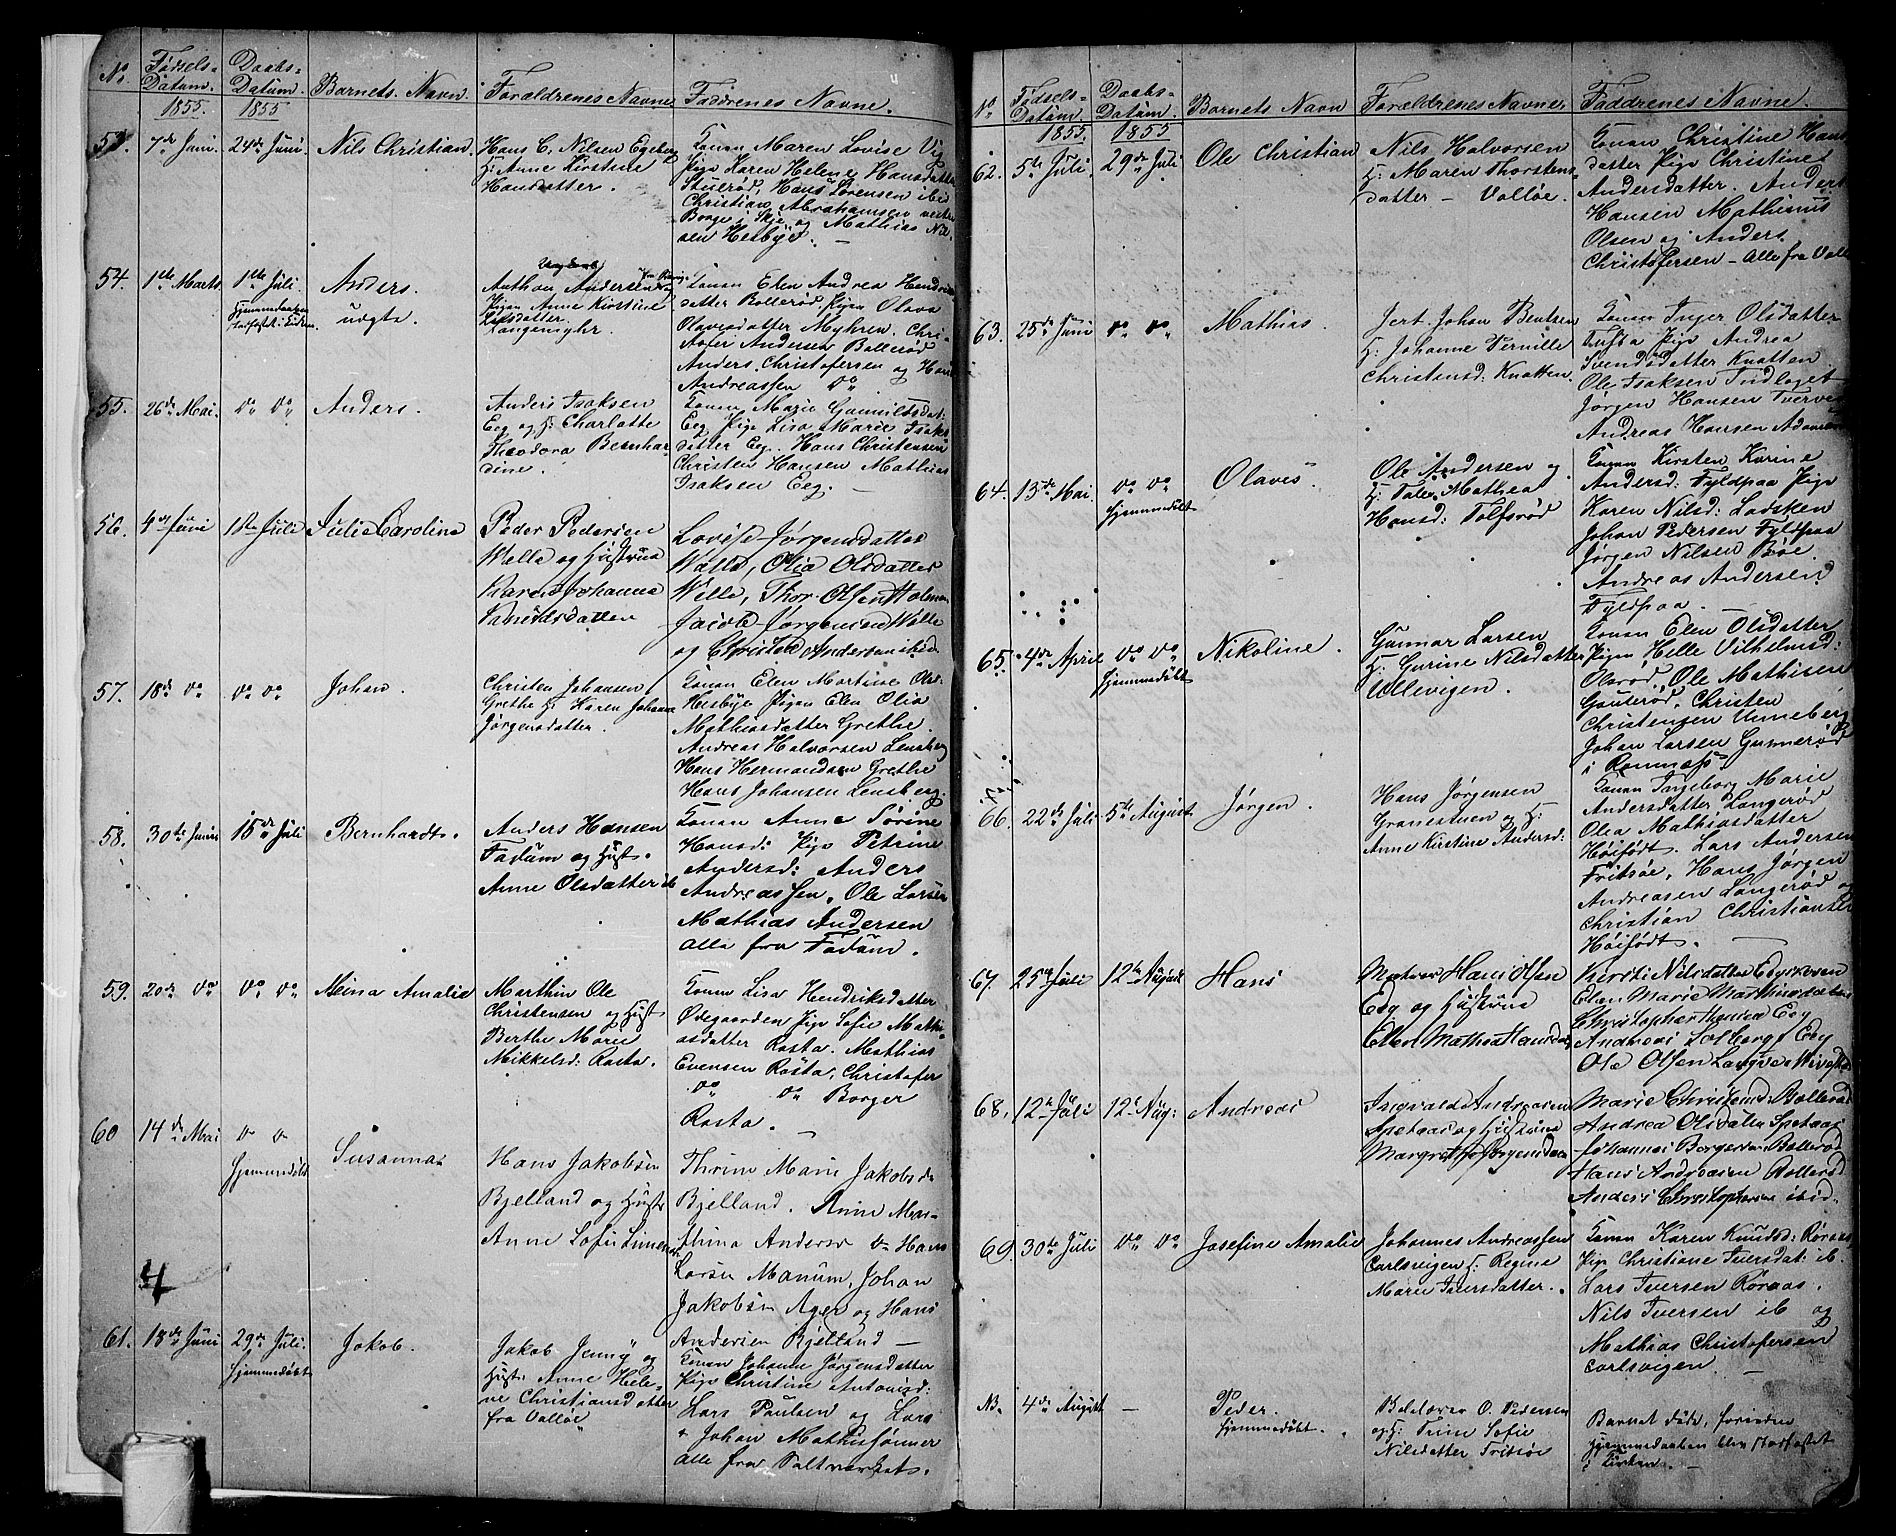 No. Fødsels- Datum. Daabs- Datum. Barnets Navn. Forældrenes Navne Faddrenes Navne.
1855. 1855
53. 7de Juni 24de Juni Nils Christian. Hans C. Nilsen Egeberg
H: Anne Kirstine
Hansdatter.
Konen Maren Lovise
Pige Karen Helene Hansdatter
Stuerød, Hans Sørensen ibd
Christian Abrahamsen
Borge i Skje og Mathias Nil-
sen Hesbye. —
54. 1ste Marts 1ste Juli. Anders.
Hjemmedaaben
stadfæstet i Kirken.
uægte.
Ungkarl
Anthon Andersen
Pigen Anne Kirstine
Langemyhr.
Konen Elen Andrea
datter Bollerød, Pigen Olava
Olavesdatter Myhren, Chri-
stofer Andersen Bollerød
Anders Christofersen og Hans
Andreassen do
55. 26de Mai. do do Anders. Anders Isaksen
Eeg og H: Charlotte
Theodora Bernhar
dine.
Konen Marie Gunnildsdat:
Eeg Pige Lisa Marie Isaks
datter Eeg. Hans Christensen
Christen Hansen Mathias
Isaksen Eeg. —
56. 4de Juni 1ste Juli Julie Caroline Peder Pedersen
Wella og Hustrue
Karen Johanna
Lovise Jørgensdatter
Wella, Olia Olsdatter
Wella, Thor Olsen Holmen
Jacob Jørgensen Wella
og Christen Andersen ibid
57. 18de do do do Johan. Christen Johansen
Grethe H: Karen Johanne
Jørgensdatter.
Konen Elen Martine Ols:
Hesbye Pigen Elen Olia
Mathiasdatter Grethe.
Andreas Halvorsen Lensberg
Hans Hermandsen Grethe
Hans Johansen Lensberg.
58. 30te Juni 15de Juli Bernhardt. Anders Hansen
Fadum og Hust.
Anne Olsdatter ib
Konen Anne Sørine
Hansd: Pige Petrine
Andersd: Anders
Andreassen, Ole Larsen
Mathias Andersen
alle fra Fadum.
59. 20de do do do Mina Amalie Marthin Ole
Christensen og Hust
Berthe Marie
Mikkelsd: Rasta.
Konen Lisa Hendriksdatter
Ødegaarden Pige Sofie Mathi-
asdatter Rasta. Mathias
Evensen Rasta, Christofer
do do Borger
Rasta. —
60 14de Mai do do Susanna
Hjemmedøbt
Hans Jakobsen
Bjelland og Hustr
Anne Sofie Simens
Thrine Marie Jakobsd
Bjelland. Anne Mar-
thina Anders do Hans
Larsen Manum, Johan
Jakobsen Ager og Hans
Andersen Bjelland —
4
61. 18de Juni 29de Juli. Jakob.
Hjemmedøbt
Jakob Jenny og
Hust: Anne Hele-
ne Christiansdatter
fra Valløe
Konen Johanne Jørgensdatter
Pige Christine Antonisd:
Lars Paulsen og Lars
+ Johan Mathissønner
alle fra Saltværket.
No Fødsels- Datum. Daabs- Datum. Barnets Navn Forældrenes Navne Faddrenes Navne.
1855. 1855
62. 5te Juli 29de Juli Ole Christian Nils Halvorsen
H: Maren Thorstens
datter — Valløe.
Konen Christine Hans
datter Pige Christine
Andersdatter. Anders
Hansen Mathinus
Olsen og Anders
Christofersen — Alle fra Valløe
63. 25de Juni do do Mathias. Jert. Johan Bentsen
H: Johanne Pernille
Christensd: Knatten.
Konen Inger Olsdatter
Tufta Pige Andrea
Svendsdatter Knatten
Ole Isaksen Indlaget
Jørgen Hansen Tverved
Andreas Hansen
64. 13de Mai. do do Olaves
Hjemmedøbt
Ole Andersen og
H: Taler Mathea
Hansd: Tolfsrød
Konen Kirsten Karine
Andersd: Fyldpaa Pige
Karen Nilsd: Ladsken
Johan Pedersen Fyldpaa
Jørgen Nilsen Bøe.
Andreas Andersen
Fyldpaa. —
65. 4de April do do Nikoline.
Hjemmedøbt
Gunnar Larsen
H: Gurine Nilsdatter
Ullevigen.
Konen Elen Olsdatter
Pigen Helle Vilhelmsd:
Olsrød, Ole Mathisen
Gauterød, Christen
Christensen Unneberg
Johan Larsen Gunnerød
i Ramnæs
66. 22de Juli 5te August Jørgen. Hans Jørgensen
Granestuen og H:
Anne Kirstine Andersd:
Konen Ingeborg Marie
Andersdatter Langerød
Olea Mathiasdatter
Høifødt. Lars Andersen
Fritsøe, Hans Jørgen
Andreasen Langerød og
Christian Christiansen
Høifødt. —
67. 25de Juli 12te August Hans Matros Hans Olsen
Eeg og Hustrue
Ellen Mathea
Kirsti Nilsdatter
Elen Marie Marthinsdatter
Christopher Hansen Eeg
Andreas Solberg Eeg
Ole Olsen
68. 12te Juli 12te Aug: Andreas Ingvald Andreasen
Spetaas og Hustrue
Margrethe Jørgensdatter
Marie Christensd: Bollerød
Andrea Olsdatter Spetaas
Johannes Borgersen Bollerød
Hans Andreasen Bollerød
Anders Christophersen ibid.
69. 30te Juli do do Josefine Amalie Johannes Andreassen
Carlsvigen H: Regine
Marie Iversdatter.
Konen Karen Knudsd: Røraas
Pige Christiane Iversdat: ib.
Lars Iversen Røraas.
Nils Iversen ib og
Mathias Christofersen
Carlsvigen. —
NB. 4de August — Peder.
Hjemmedøbt.
O. Pedersen
og H: Trine Sofie
Nilsdatter Fritsøe
Barnet døde, forinden
Hjemmedaaben blev stadfæstet
i Kirken. —